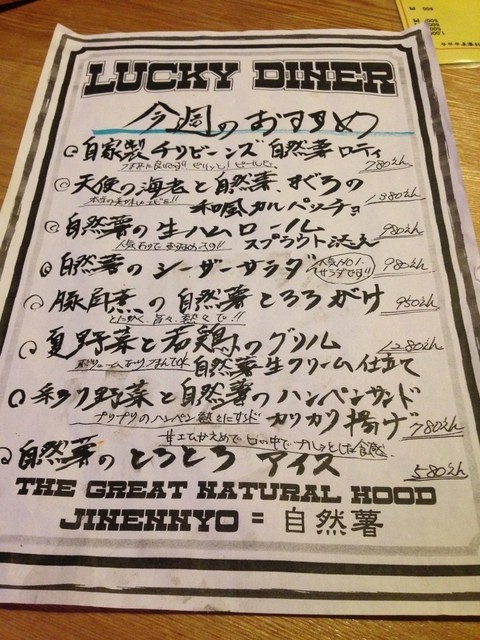 LUCKY DINER
今週のおすすめ
自家製チリビーンズ 自然薯ロティ
780えん
天使の海老と自然薯、まぐろの
和風カルパッチョ
1380えん
自然薯の生ハムロール
スプラウト添え
980えん
自然薯のシーザーサラダ
人気NO.1
サラダです!!
980えん
豚肩煮の自然薯とろろがけ
とにかく、旨々、熱々で!!
950えん
夏野菜と若鶏のグリル
1280えん
自然薯生クリーム仕立て
彩り野菜と自然薯のハンペンサンド
プリプリのハンペン熱々にサンド
カリカリ揚げ
780えん
自然薯のとろとろアイス
甘エひかえめで口の中でプルッとした食感
580えん
THE GREAT NATURAL HOOD
JINENNYO = 自然薯